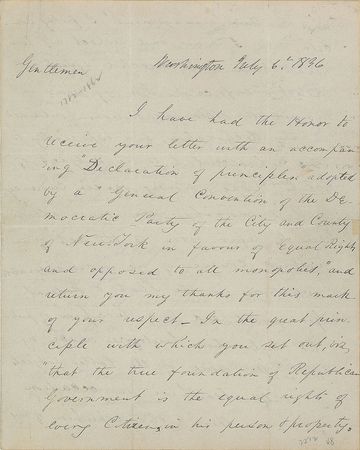 Washington July 6th 1836
Gentlemen
I have had the Honor to
receive your letter with an accompan-
ing "Declaration of principles adopted
by a "General Convention of the DE-
mocratic Party of the City and County
of New-York in favour of equal Rights
and opposed to all monopolies," and
return you my thanks for this mark
of your respect_ In the great prin-
ciple with which you set out, viz,
"that the true foundation of Republican
Government is the equal rights of
every Citizen, in his person & property,